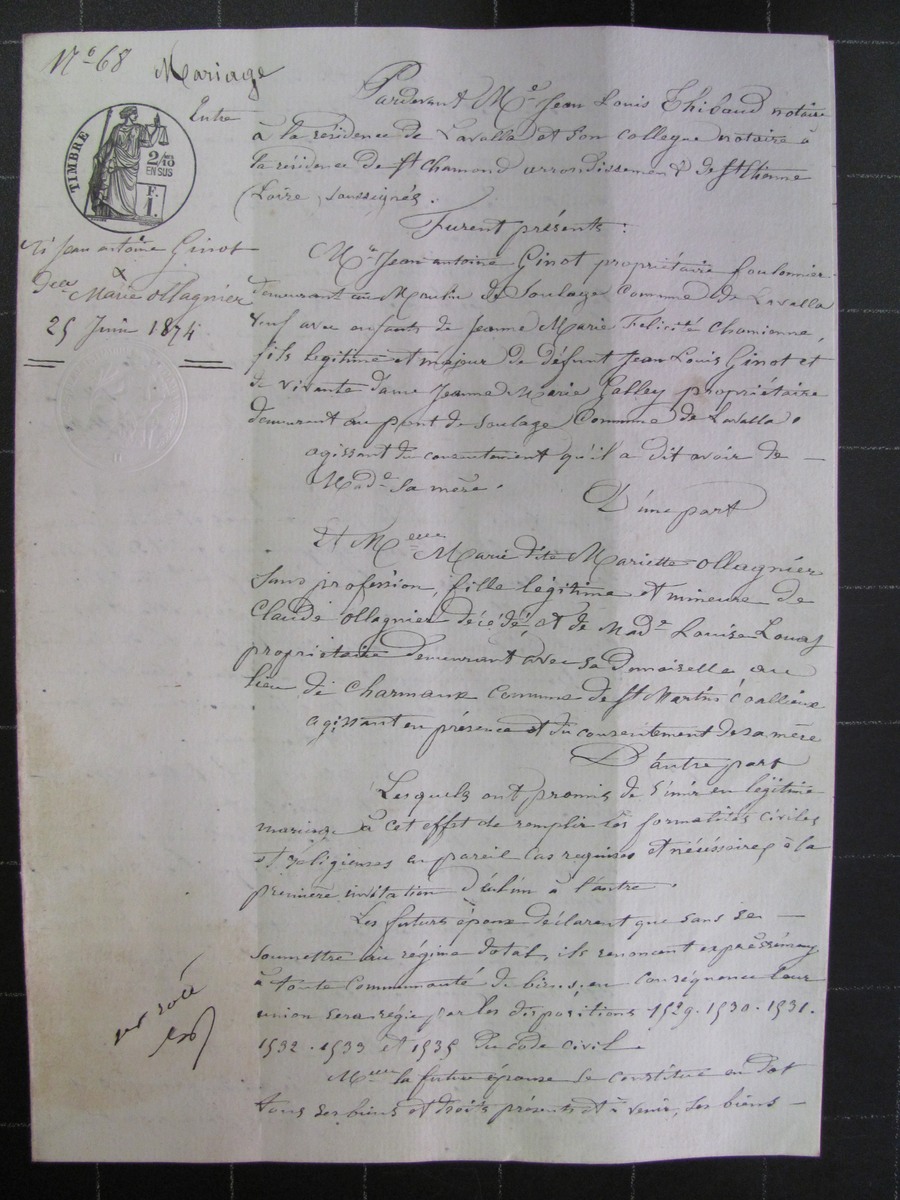 N° 68 Mariage
Entre
TIMBRE
2/10
EN SUS
F.
1.
Jean antoine Ginot
&
Marie Ollagnier
25 Juin 1874
Pardevant Me Jean Louis Thibaud notaire
à la résidence de Lavalla et son collegue notaire à
la résidence de St Chamond arrondissement de St Etienne
(Loire, soussignés.
Furent présents:
Mr Jean antoine Ginot propriétaire foulonnier
demeurant au Moulin de Soulage Commune de Lavalla
veuf avec enfants de Jeanne Marie Felicité Chamienne,
fils legitime et majeur de défunt Jean Louis Ginot et
de vivante dame Jeanne Marie propriétaire
demeurant au pont de Soulage Commune de Lavalla.
agissant du consentement qu'il a dit avoir de
Made sa mère.
D'une part
Et Melle Marie dite Mariette Ollagnier
sans profession, fille légitime et mineure de
Claude Ollagnier décédé, et de Made Louise
propriétaire demeurant avec sa Demoiselle au
lieu de Charmaux Commune de St Martin
agissant en présence et du consentement de sa mère
D'autre part
Lesquels ont promis de s'unir en légitime
mariage à cet effet de remplir les formalités civiles
et religieuses en pareil cas requises et nécessaires à la
première invitation d'un à l'autre.
Les futurs époux déclarent que sans se
soumettre au régime dotal, ils renoncent expressément
à toute Communauté de biens, en conséquence leur
union sera régie par les dispositions 1529. 1530. 1531.
1532. 1533 et 1535 du code civil.
Melle la future épouse se constitue en dot
tous ses biens et droits présents et à venir, ses biens